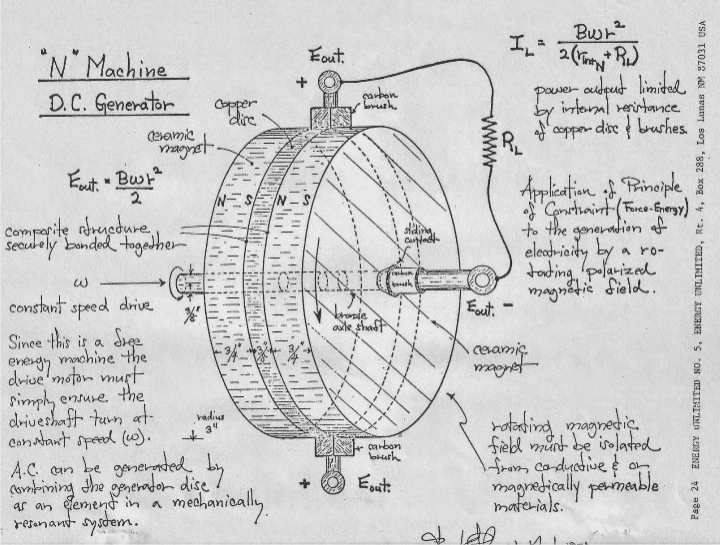 "N" Machine
D.C. Generator
Eout. = Bωr²
2
composite structure
securely bonded together
ω
constant speed drive
3/8"
Since this is a free
energy machine the
drive motor must
simply ensure the
driveshaft turn at
constant speed (ω).
radius
3"
A.C. can be generated by
combining the generator disc
as an element in a mechanically
resonant system.
Eout.
+
carbon
brush
copper
disc
ceramic
magnet
N S N S
sliding
contact
carbon
brush
bronze
axle shaft
3/4" 3/8" 3/4"
carbon
brush
+ Eout.
RL
Eout. -
ceramic
magnet
IL = Bωr²
2(rintN + RL)
power output limited
by internal resistance
of copper disc & brushes.
Application of Principle
of Constraint (Force-Energy)
to the generation of
electricity by a ro-
tating polarized
magnetic field.
rotating magnetic
field must be isolated
from conductive & or
magnetically permeable
materials.
Page 24 ENERGY UNLIMITED NO. 5, ENERGY UNLIMITED, Rt. 4, Box 288, Los Lunas NM 87031 USA